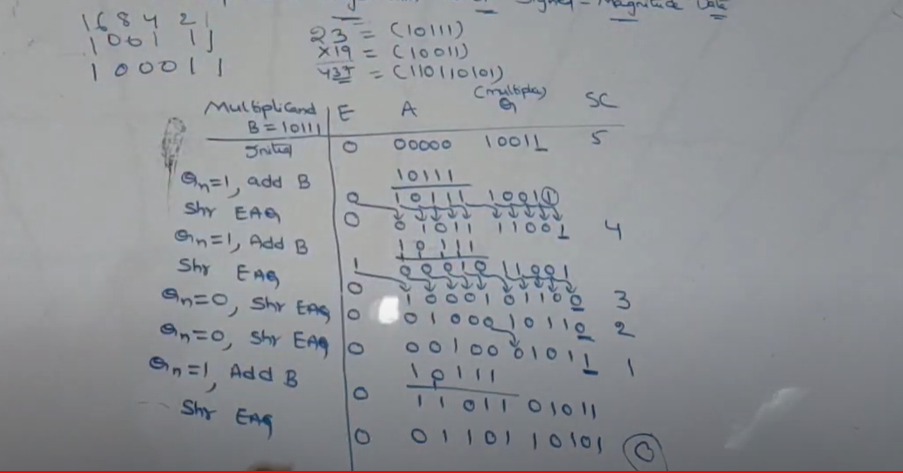 Signed - Magnitude Data
16 8 4 2 1
1 0 0 1 1 1
1 0 0 0 1 1
23 = (10111)
×19 = (10011)
437 = (110110101)
Multiplicand B = 10111 E A (multiplier) Q SC
Initial 0 00000 10011 5
10111
Qn=1, add B 0 10111 10011
Shr EAQ 0 01011 11001 4
Qn=1, Add B 10111
1 00010 11001
Shr EAQ 0 10001 01100 3
Qn=0, Shr EAQ 0 01000 10110 2
Qn=0, Shr EAQ 0 00100 01011 1
Qn=1, Add B 10111
0 11011 01011
Shr EAQ 0 01101 10101 0